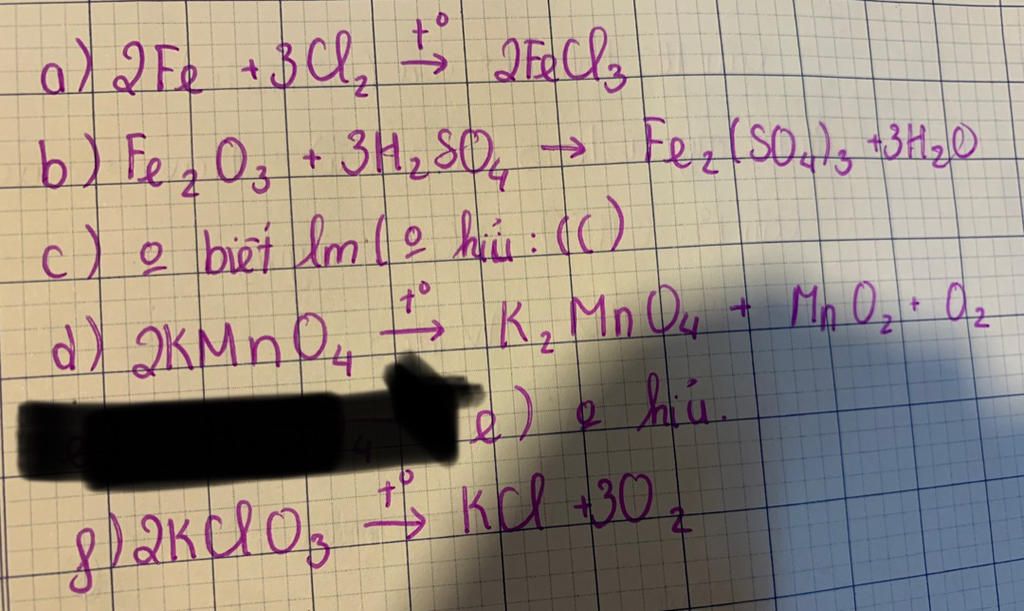 a) 2Fe + 3Cl₂ →t° 2FeCl₃
b) Fe₂O₃ + 3H₂SO₄ → Fe₂(SO₄)₃ + 3H₂O
c) o biết lm (o hỉu : (( )
d) 2KMnO₄ →t° K₂MnO₄ + MnO₂ + O₂
e) o hỉu.
g) 2KClO₃ →t° KCl + 3O₂